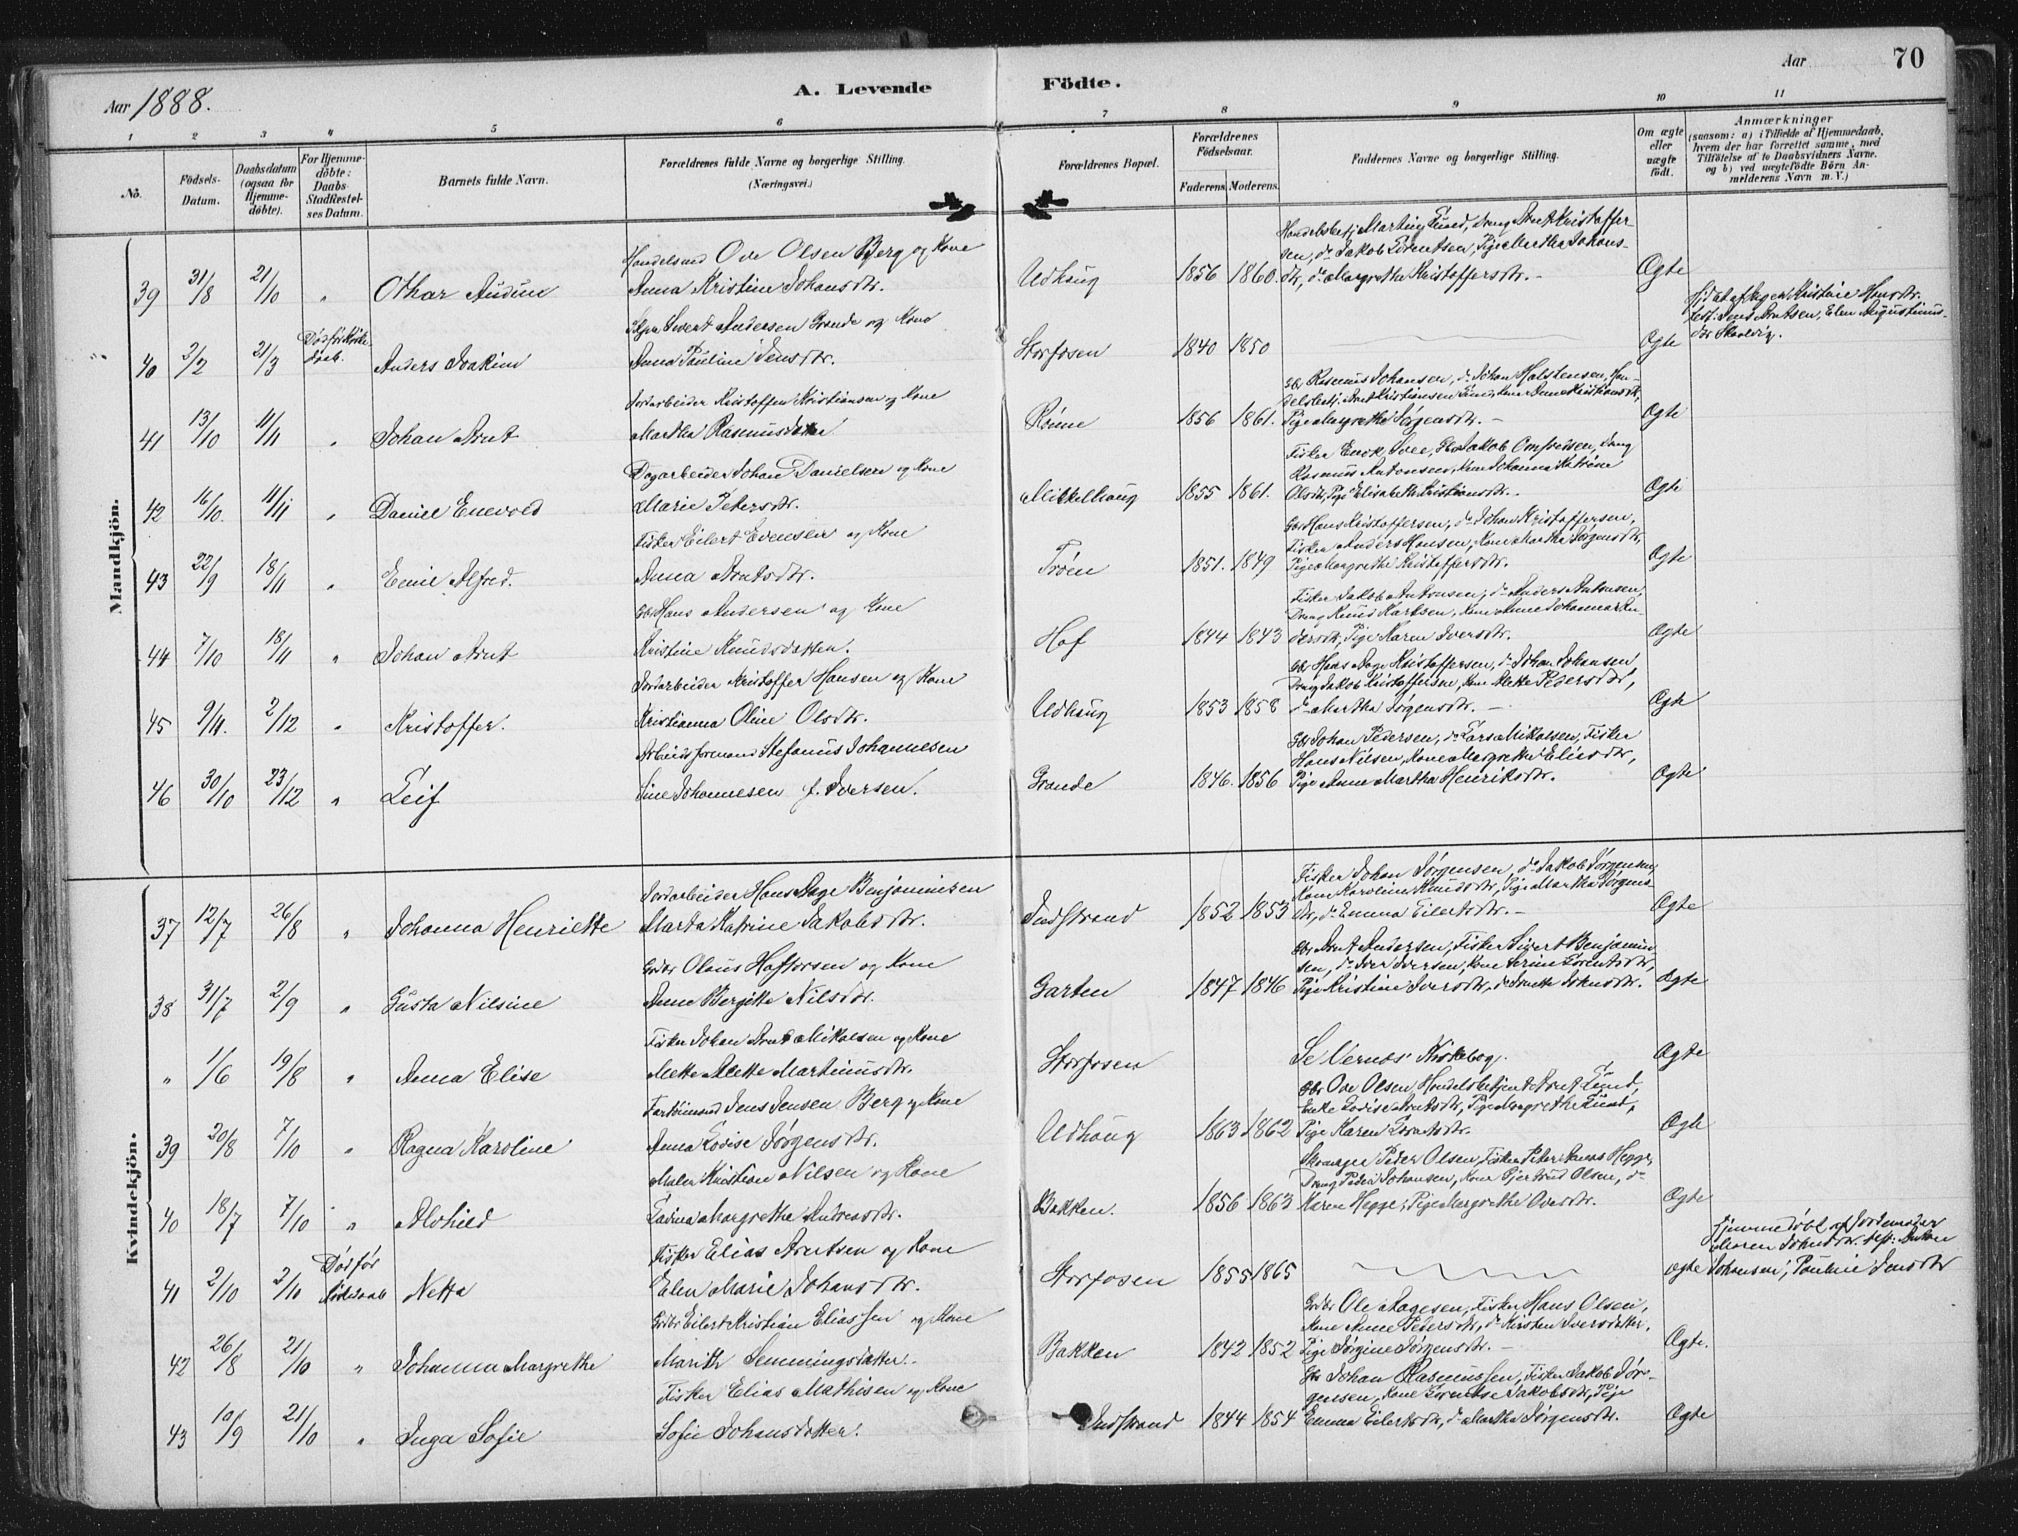 Aar 1888.
A. Levende Födte.
Aar
70
1 2 3 4 5 6 7 8 9 10 11
No.
Födsels-Datum.
Daabsdatum (ogsaa for Hjemme-döbte).
For Hjemme-döbte: Daabs-Stadfæstel-ses Datum.
Barnets fulde Navn.
Forældrenes fulde Navne og borgerlige Stilling. (Næringsvei.)
Forældrenes Bopæl.
Forældrenes Födselsaar.
Faderens. Moderens.
Faddernes Navne og borgerlige Stilling.
Om ægte eller uægte födt.
Anmærkninger
(saasom: a) i Tilfælde af Hjemmedaab,
hvem der har forrettet samme, med
Tilföielse af to Daabsvidners Navne,
og b) ved uægtefödte Börn An-
melderens Navn m. V.)
Mandkjön.
39 31/8 21/10 " Othar Audun
Handelsmd Ove Olsen Berg og Kone
Anna Kristine Johansdtr.
Udhaug 1856 1860.
sen, do Jakob Lorentsen, Pige Martha Johans-
dtr, do Margrethe Kristoffersdtr. -
Ægte
40 2/2 21/3 Død før Kirke daab. Anders Joakim
Sivert Andersen Grande og Kone
Anna Pauline Jensdtr.
Storfosen 1840 1850
Ægte
test: Jens Arntsen, Elen Augustinus-
dtr
41 13/10 11/11 " Johan Arnt
Jordarbeider Kristoffer Kristiansen og Kone
Martha Rasmusdatter
Rønne 1856 1861.
Gbr Rasmus Johansen, do Johan Halstensen, Han-
delsbetj. Arnt Kristiansen
Pige Margrethe Jørgensdtr. -
Ægte
42 16/10. 11/11 " Daniel Enevold
Dagarbeider Johan Danielsen og Kone
Marie Petersdtr.
Mikkelhaug 1855 1861.
Rasmus Antonsen, Kone Johanna Katrine
Olsdtr, Pige Elisabeth Kristiansdtr. -
Ægte
43 22/9 18/11 " Emil Alfred.
Fisker Eilert Evensen og Kone
Anna Arntsdtr.
Trøen 1851. 1849
Gbr Hans Kristoffersen, do Johan Kristoffersen,
Fisker Anders Hansen, Kone Martha Jørgensdtr,
Pige Margrethe Kristoffersdtr.
Ægte
44 7/10 18/11 " Johan Arnt
Gbr Hans Andersen og Kone
Kristine Knudsdatter.
Hof 1844 1843
Fisker Jakob Antonsen, do Anders Antonsen,
Kone Anne Johanna An-
dersdtr, Pige Karen Iversdtr.
Ægte
45 9/11. 2/12 " Kristoffer.
Jordarbeider Kristoffer Hansen og Kone
Kristianna Oline Olsdtr.
Udhaug 1853 1858
Gbr Hans Aage Kristoffersen, do Johan Johansen,
Dreng Jakob Kristoffersen, Kone Mette Pedersdtr,
do Martha Jørgensdtr. -
Ægte
46 30/10 23/12 " Leif
Arbeidsformand Stefanus Johannesen
Sine Johannesen f. Iversen.
Grande 1846. 1856
Gbr Johan Pedersen, do Lars Mikalsen, Fisker
Hans Nilsen, Kone Margrethe Eliasdtr,
Pige Anne Martha Henriksdtr.
Ægte
Kvindekjön.
37 12/7 26/8 " Johanna Henriette
Jordarbeider Hans Aage Benjaminsen
Marta Katrine Jakobsdtr.
Indstrand 1852 1853
Fisker Johan Jørgensen, do Jakob Jørgensen,
Kone Karoline Knudsdtr, Pige Martha Jørgens-
dtr, do Emma Eilertsdtr. -
Ægte
38 31/7 2/9 " Gusta Nilsine
Gbr Olaus Haftorsen og Kone
Anne Bergitte Nilsdtr.
Garten 1847 1846
Gbr Arnt Andersen, Fisker Sivert Benjamin-
sen, do Iver Iversen, Kone Serine Lorentsdtr,
Pige Kristine Iversdtr, do
Ægte
" 1/6 19/8 " Anna Elise
Fisker Johan Arnt Mikalsen og Kone
Mette Alette Martinusdtr.
Storfosen
Se Nernæs' Kirkebog.
Ægte
39 20/8 7/10 " Ragna Karoline
Jens Jensen Berg og Kone
Anna Lovise Jørgensdtr.
Udhaug 1863 1862
Gbr Ove Olsen, Handelsbetjent Arnt Lund,
Enke Lovise Arntsdtr, Pige Margrethe Lund,
Pige Karen
Ægte
40 18/7 7/10 " Alvhild
Maler Kristian Nilsen og Kone
Margrethe Andreasdtr.
Bakken. 1856 1863
Peder Olsen, Fisker Peter Hegge,
Dreng Peder Johansen, Kone Gjertrud Olsen, do
Maren Hegge, Pige Margrethe Ovesdtr.
Ægte
41 2/10 2/10 Død før Netta
Fisker Elias Arntsen og Kone
Elen Marie Johansdtr.
Storfosen 1855 1865
Ægte
Hjemmedøbt af Jordemoder
Maren Johnsdtr. test: Anton
Johansen, Pauline Jensdtr
42 26/8 21/10 " Johanna Margrethe
Gbr Eilert Kristian Eliassen og Kone
Marith Semmingsdatter.
Bakken 1842 1852
Gbr Ole Aagesen, Fisker Hans Olsen,
Kone Anne Pedersdtr, do Kirsten Iversdatter,
Pige Jørgine Jørgensdtr. -
Ægte.
43 10/9 21/10 " Inga Sofie
Fisker Elias Mathisen og Kone
Sofie Johansdatter.
Indstrand 1844 1854
Gbr Johan Rasmussen, Fisker Jakob Jør-
gensen, Kone Jakobsdtr, Pige
Emma Eilertsdtr, do Martha Jørgensdtr.
Ægte